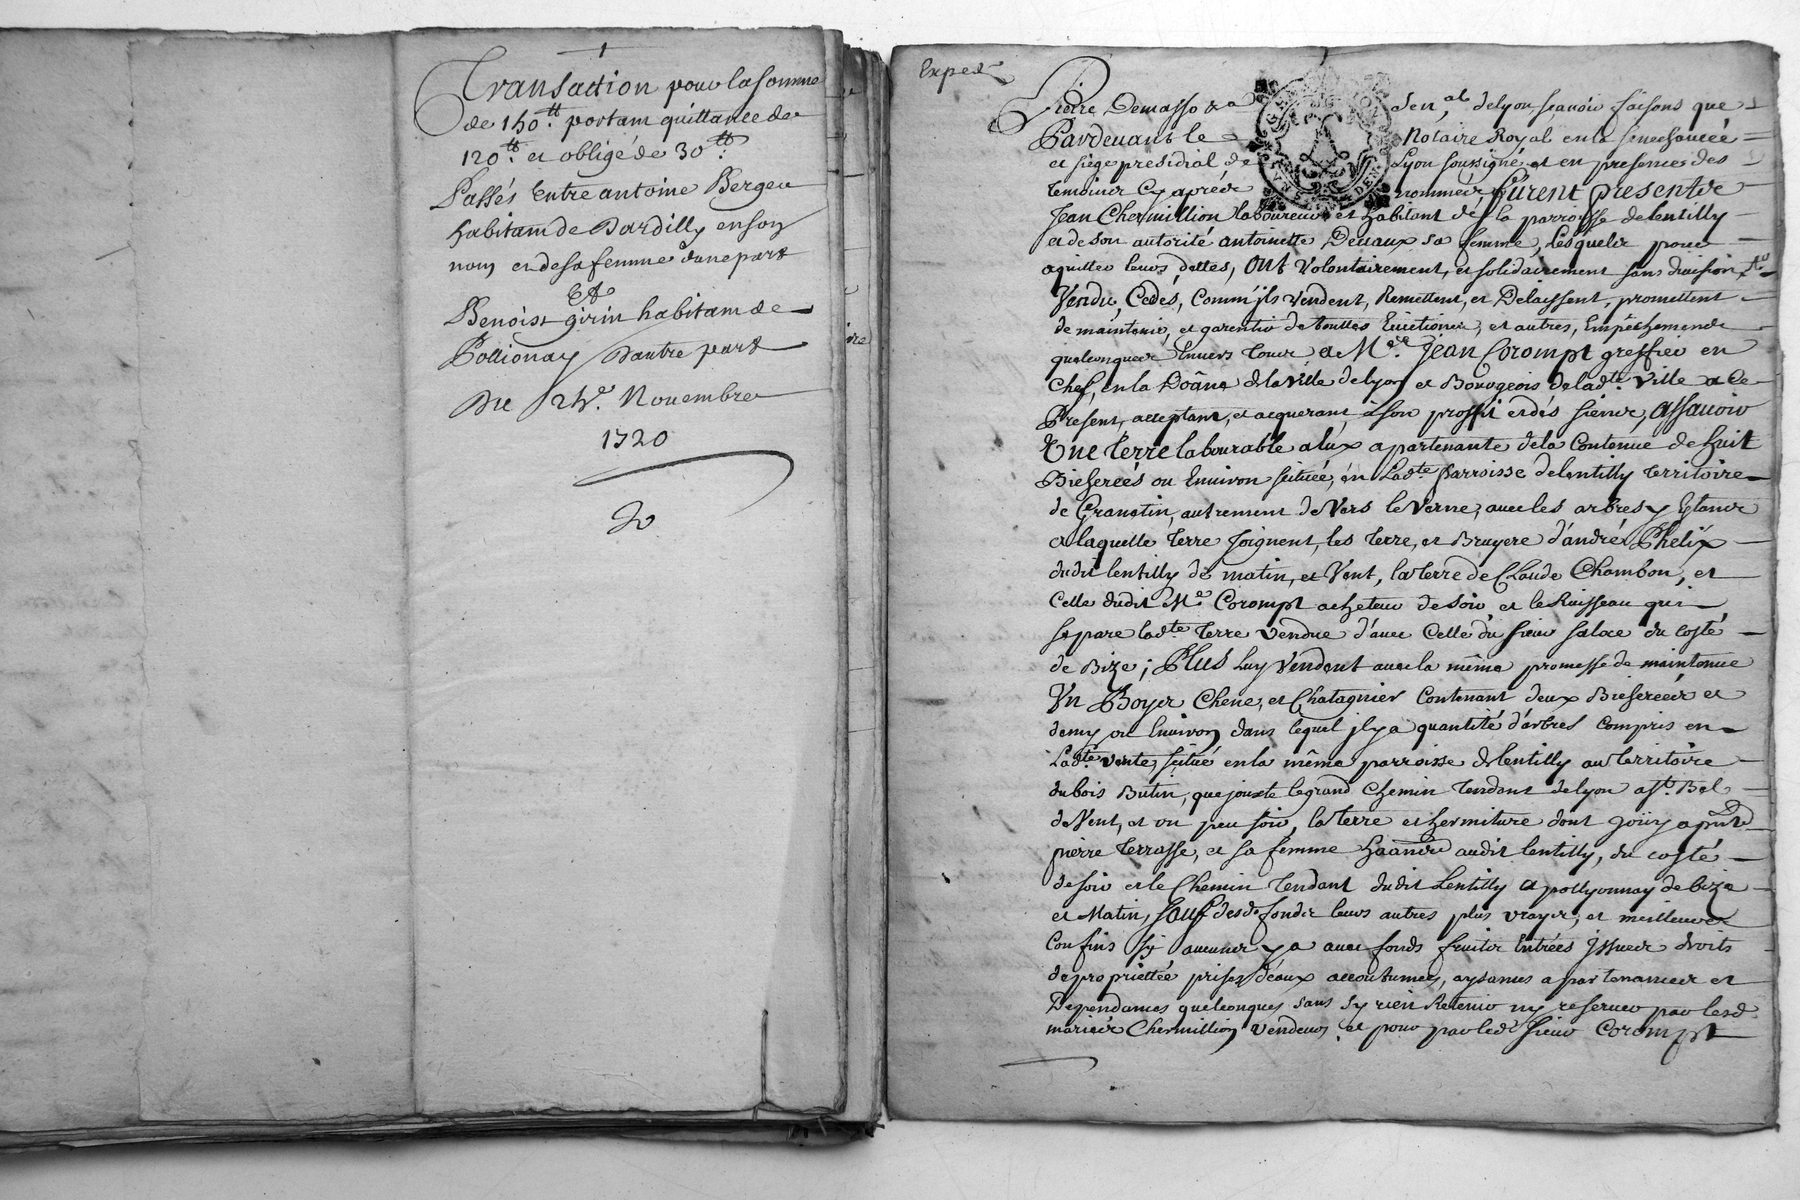 Transaction pour la somme
de 150.tt portant quittance de
120.tt et obligé de 30.tt
Passés Entre antoine Bergeu
habitant de Dardilly en son
nom et de sa femme dune part
Et
Benoist girin habitant de
Pollionay Dautre part
Du 24e. Novembre
1720
Exped
Pierre Demasso &a Sen,al de lyon sçavoir faisons que
Pardevant le Notaire Royal en la senechaucée
et siége presidial de Lyon soussigné et en presences des
temoins Cy aprés nommés furent presents
Jean Chermillion laboureur et habitant dé la parroisse de lentilly
et de son autorité antoinette Devaux sa femme, Lesquels pour
aquitter leurs dettes, ont volontairement, et solidairement sans division
Vendu, Cedés, Comm'jls vendent, Remettent, et Delaissent, promettent
de maintenir, et garentir de touttes Evictions, et autres, Empéchements
quelconques Envers tous, a Mre. Jean Corompt greffier en
Chef, en la Doâne de la Ville de lyon et Bourgeois de ladte. Ville a Ce
Present, acceptant, et acquerant, à son proffit et dés siens, assavoir
Une Terre labourable a lux apartenante de la Contenue de huit
Bicherées ou Environ scituée, en Ladte. parroisse de lentilly territoire
de Granotin, autrement de Vers le Verne, avec les arbres y Etants
et laquelle terre Joignent, les terre, et Bruyere d'andré Phelix
dudit lentilly de matin, et Vent, la terre de Claude Chambon, et
Celle dudit Me. Corompt acheteur de soir, et le Ruisseau qui
separe ladte. terre vendue d'avec Celle du sieur du costé
de Bize; Plus Luy Vendent avec la même promesse de maintenue
Un Boyer Chene, et Chatagnier Contenant deux Bicherées et
demy ou Environ dans lequel jl y a quantité d'arbres Compris en
Ladte. vente, scitué en la même parroisse de lentilly au territoire
du bois Butin, que jouxte le grand chemin tendant de lyon a st. Bel
de Vent, et un peu soir, la terre et hermiture dont joüy apñt
pierre terrasse, et sa femme audit lentilly, du costé
de soir et le Chemin tendant dudit Lentilly a pollyonnay de bize
et Matin, sauf desd. fonds leurs autres plus vrayes, et meilleures
Confins sy aucunes y a avec fonds fruits Entrées Jssues droits
de propriettée prises d'éaux accoutumées, aysances apartenances et
Dependances quelconques sans sy rien Retenir ny reserver par lesd.
mariés Chermillion vendeurs et pour par led. sieur Corompt